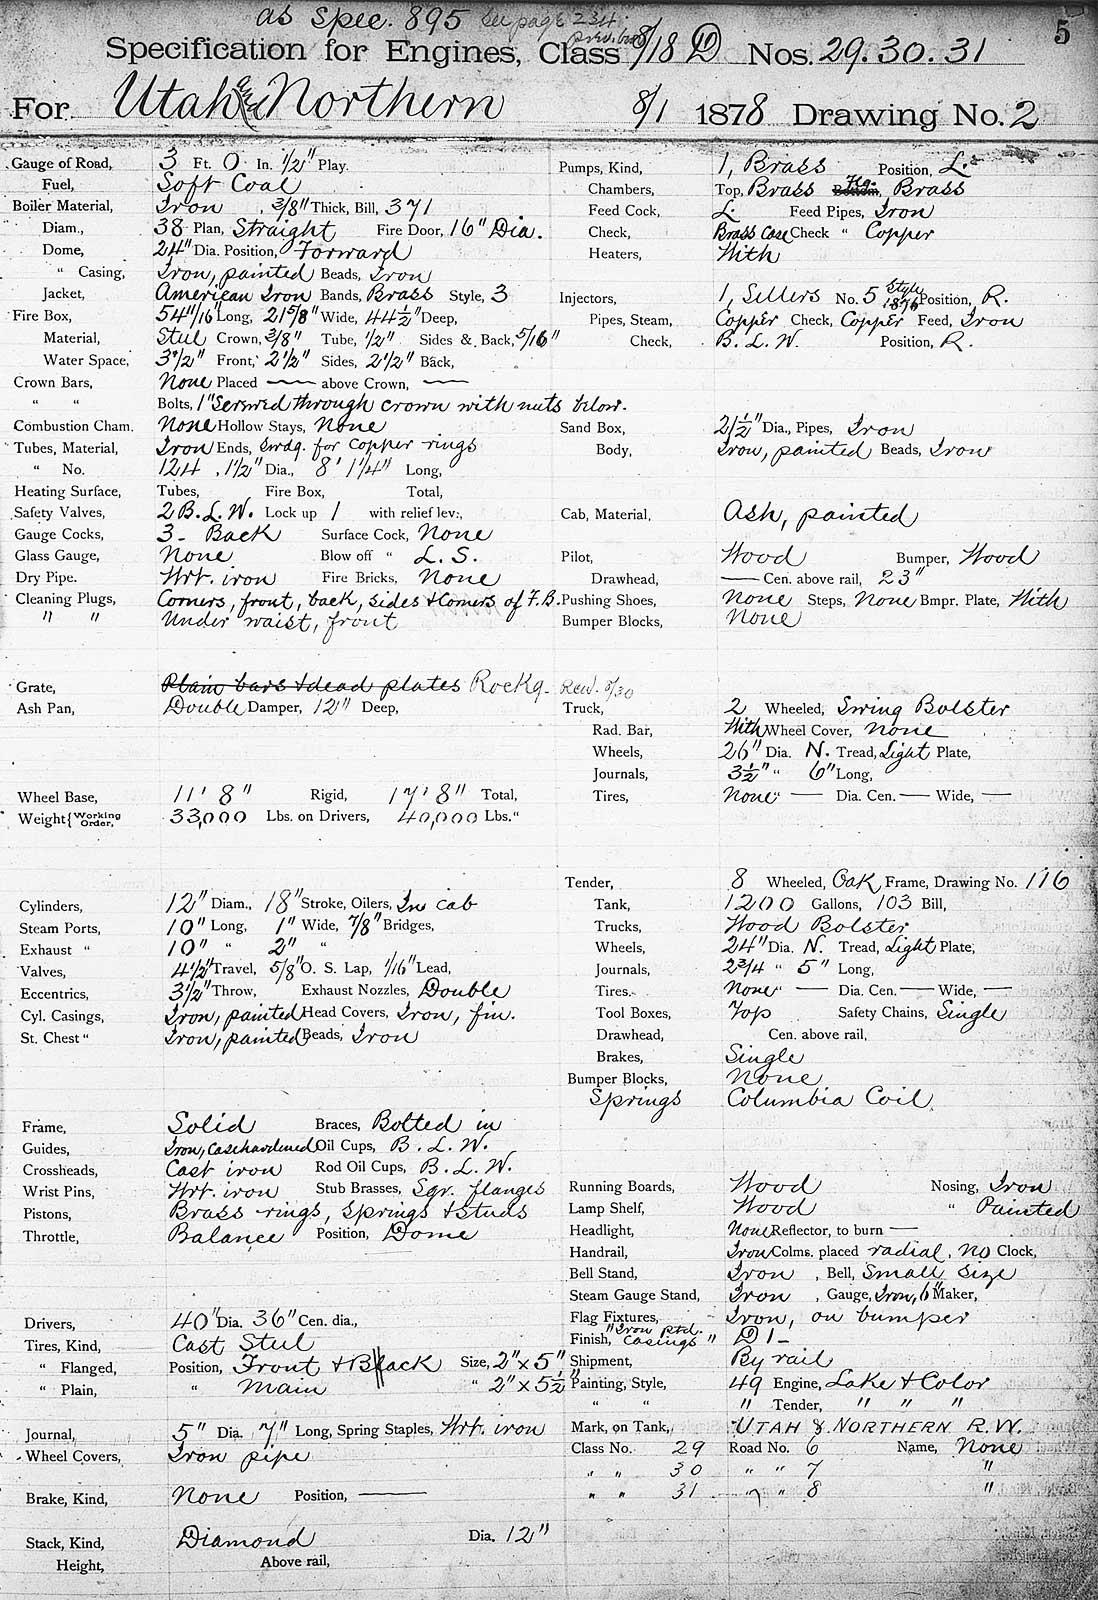 as Spec. 895 See page 234
5
Specification for Engines, Class 8/18 D Nos. 29. 30. 31
For Utah and Northern 8/1 1878 Drawing No. 2
Gauge of Road, 3 Ft. 0 In. 1/2" Play.
Fuel, Soft Coal
Boiler Material, Iron, 3/8" Thick, Bill, 371
Diam., 38 Plan, Straight Fire Door, 16" Dia.
Dome, 24" Dia. Position, Forward
" Casing, Iron, painted Beads, Iron
Jacket, American Iron Bands, Brass Style, 3
Fire Box, 54"/16" Long, 21 5/8" Wide, 44 1/2" Deep,
Material, Steel Crown, 3/8" Tube, 1/2" Sides & Back, 5/16"
Water Space, 3 1/2" Front, 2 1/2" Sides, 2 1/2" Back,
Crown Bars, None Placed —— above Crown, ——
" " Bolts, 1" Screwed through crown with nuts below.
Combustion Cham. None Hollow Stays, None
Tubes, Material, Iron Ends, Swdg. for copper rings
" No. 124, 1 1/2" Dia., 8' 1 1/4" Long,
Heating Surface, Tubes, Fire Box, Total,
Safety Valves, 2 B. L. W. Lock up 1 with relief lev:,
Gauge Cocks, 3 - Back Surface Cock, None
Glass Gauge, None Blow off " L. S.
Dry Pipe. Wrt. iron Fire Bricks, None
Cleaning Plugs, Corners, front, back, sides & Corners of F. B.
" " Under waist, front
Grate, Plain bars & dead plates Rockg. Recd. 8/30
Ash Pan, Double Damper, 12" Deep,
Wheel Base, 11' 8" Rigid, 17' 8" Total,
Weight { Working Order, 33,000 Lbs. on Drivers, 40,000 Lbs. "
Cylinders, 12" Diam., 18" Stroke, Oilers, In cab
Steam Ports, 10" Long, 1" Wide, 7/8" Bridges,
Exhaust " 10" " 2" "
Valves, 4 1/2" Travel, 5/8" O. S. Lap, 1/16" Lead,
Eccentrics, 3 1/2" Throw, Exhaust Nozzles, Double
Cyl. Casings, Iron, painted Head Covers, Iron, fin.
St. Chest " Iron, painted Beads, Iron
Frame, Solid Braces, Bolted in
Guides, Iron, Casehardened Oil Cups, B. L. W.
Crossheads, Cast iron Rod Oil Cups, B. L. W.
Wrist Pins, Wrt. iron Stub Brasses, Sqr. flanges
Pistons, Brass rings, Springs & studs
Throttle, Balance Position, Dome
Drivers, 40" Dia. 36" Cen. dia.,
Tires, Kind, Cast Steel
" Flanged, Position, Front & Back Size, 2" x 5"
" Plain, " Main " 2" x 5 1/2"
Journal, 5" Dia. 7" Long, Spring Staples, Wrt. iron
Wheel Covers, Iron pipe
Brake, Kind, None Position, ——
Stack, Kind, Diamond Dia. 12"
Height, Above rail,
Pumps, Kind, 1, Brass Position, L.
Chambers, Top, Brass Bottom, Brass
Feed Cock, L. Feed Pipes, Iron
Check, Brass Case Check " Copper
Heaters, With
Injectors, 1, Sellers No. 5 Style 1876 Position, R.
Pipes, Steam, Copper Check, Copper Feed, Iron
Check, B. L. W. Position, R.
Sand Box, 2 1/2" Dia., Pipes, Iron
Body, Iron, painted Beads, Iron
Cab, Material, Ash, painted
Pilot, Wood Bumper, Wood
Drawhead, —— Cen. above rail, 23"
Pushing Shoes, None Steps, None Bmpr. Plate, With
Bumper Blocks, None
Truck, 2 Wheeled, Swing Bolster
Rad. Bar, With Wheel Cover, None
Wheels, 26" Dia. N. Tread, Light Plate,
Journals, 3 1/2" " 6" Long,
Tires, None " — Dia. Cen. — Wide, —
Tender, 8 Wheeled, Oak Frame, Drawing No. 116
Tank, 1200 Gallons, 103 Bill,
Trucks, Wood Bolster
Wheels, 24" Dia. N. Tread, Light Plate,
Journals, 2 3/4 " 5" Long,
Tires. None " — Dia. Cen. — Wide, —
Tool Boxes, Top Safety Chains, Single
Drawhead, Cen. above rail,
Brakes, Single
Bumper Blocks, None
Springs Columbia Coil.
Running Boards, Wood Nosing, Iron
Lamp Shelf, Wood " Painted
Headlight, None Reflector, to burn —
Handrail, Iron Colms. placed radial, No Clock,
Bell Stand, Iron, Bell, Small size
Steam Gauge Stand, Iron, Gauge, Iron, 6" Maker,
Flag Fixtures, Iron, on bumper
Finish, "Iron ptd. Casings" D 1 -
Shipment, By rail
Painting, Style, 49 Engine, Lake & Color
" " " Tender, " " "
Mark, on Tank, UTAH & NORTHERN R. W.
Class No. 29 Road No. 6 Name, None
" " 30 " " 7 "
" " 31 " " 8 "